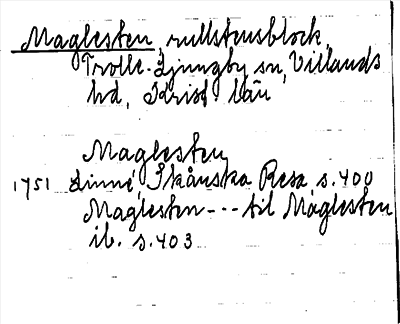 Maglesten, rullstensblock,
Trolle-Ljungby sn, Villands
hd, Krist. län
Maglesten,
1751 Linné, Skånska Resa, s. 400
Maglesten --- til Maglesten
ib. s. 403